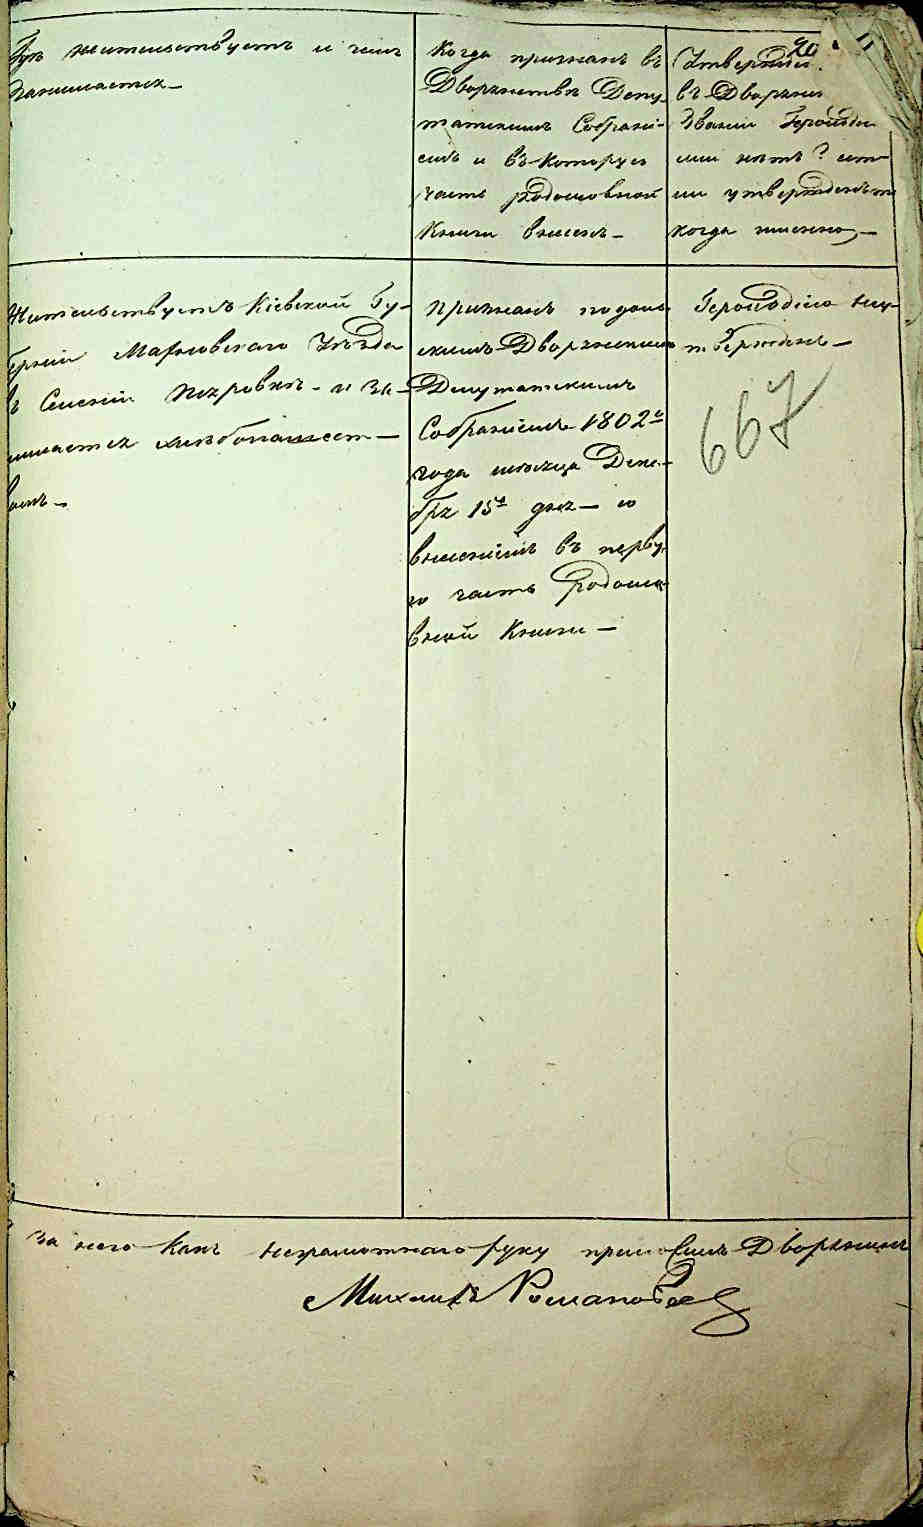 20
Гдѣ жительствуетъ и чемъ
занимается
Когда признанъ въ
Дворянствѣ Депу-
татскимъ Собрані-
емъ и въ которую
часть родословной
Книги внесенъ
Утвержденъ
въ Дворян
званіи Герольді
или нѣтъ? ест-
ли утвержденъ то
когда именно,
Жительствуетъ Кіевской Гу-
берніи Махновскаго Уѣзда
в Селеніи Петровкѣ и за-
нимается хлѣбопашест-
вомъ
Признанъ подоль-
скимъ Дворянскимъ
Депутатскимъ
Собраніемъ 1802го
года месяца Дека-
бря 15го дня со
внесеніемъ въ перву-
ю часть Родосло-
вной Книги
Герольдіею неу-
твержденъ
667
За него какъ неграмотнаго руку приложилъ Дворянинъ
Михаилъ Романовъ